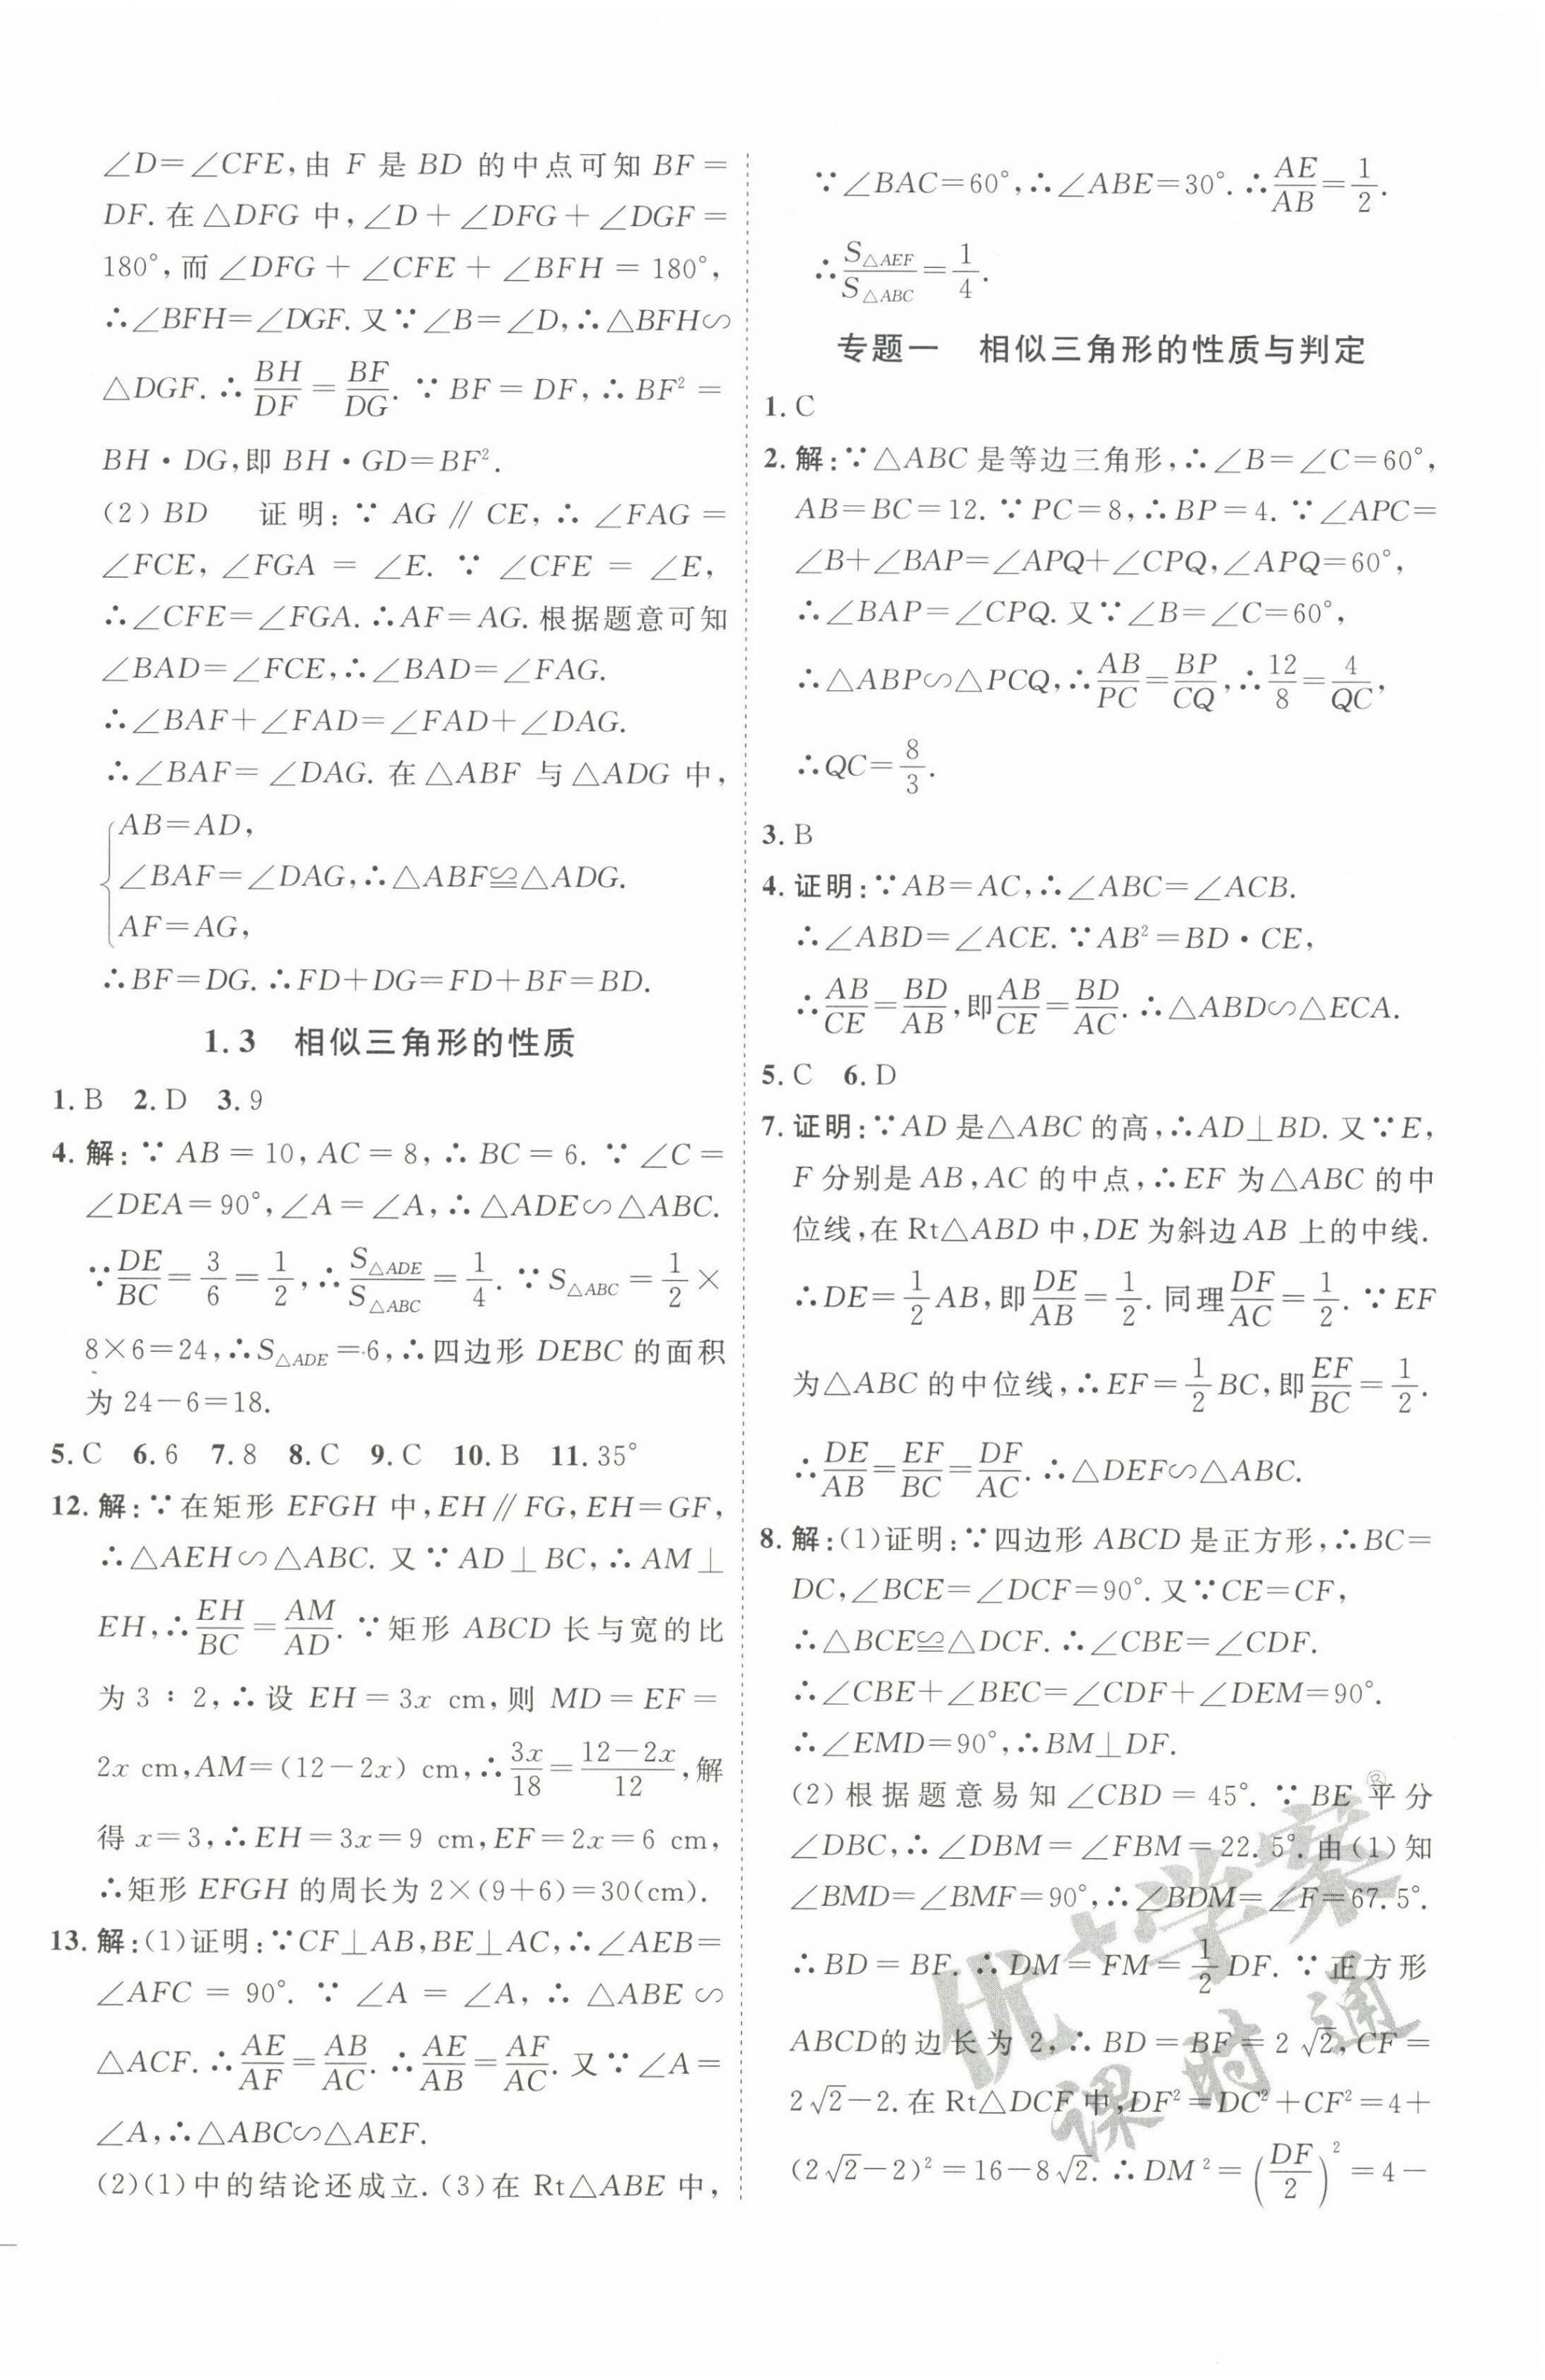 ∠D=∠CFE,由 F 是 BD 的中点可知 BF=
DF. 在△DFG 中,∠D+∠DFG+∠DGF=
180°,而∠DFG+∠CFE+∠BFH=180°,
∴∠BFH=∠DGF. 又∵∠B=∠D,∴△BFH∽
△DGF. ∴BH/DF=BF/DG. ∵BF=DF,∴BF²=
BH·DG,即 BH·GD=BF².
(2) BD 证明:∵AG∥CE,∴∠FAG=
∠FCE,∠FGA=∠E. ∵∠CFE=∠E,
∴∠CFE=∠FGA. ∴AF=AG. 根据题意可知
∠BAD=∠FCE,∴∠BAD=∠FAG.
∴∠BAF+∠FAD=∠FAD+∠DAG.
∴∠BAF=∠DAG. 在△ABF 与△ADG 中,
AB=AD,
∠BAF=∠DAG,∴△ABF≌△ADG.
AF=AG,
∴BF=DG. ∴FD+DG=FD+BF=BD.
1.3 相似三角形的性质
1. B 2. D 3. 9
4. 解:∵AB=10,AC=8,∴BC=6. ∵∠C=
∠DEA=90°,∠A=∠A,∴△ADE∽△ABC.
∵DE/BC=3/6=1/2,∴S△ADE/S△ABC=1/4. ∵S△ABC=1/2×
8×6=24,∴S△ADE=6,∴四边形 DEBC 的面积
为 24-6=18.
5. C 6. 6 7. 8 8. C 9. C 10. B 11. 35°
12. 解:∵在矩形 EFGH 中,EH∥FG,EH=GF,
∴△AEH∽△ABC. 又∵AD⊥BC,∴AM⊥
EH,∴EH/BC=AM/AD. ∵矩形 ABCD 长与宽的比
为 3:2,∴设 EH=3x cm,则 MD=EF=
2x cm,AM=(12-2x) cm,∴3x/18=(12-2x)/12,解
得 x=3,∴EH=3x=9 cm,EF=2x=6 cm,
∴矩形 EFGH 的周长为 2×(9+6)=30(cm).
13. 解:(1)证明:∵CF⊥AB,BE⊥AC,∴∠AEB=
∠AFC=90°. ∵∠A=∠A,∴△ABE∽
△ACF. ∴AE/AF=AB/AC. ∴AE/AB=AF/AC. 又∵∠A=
∠A,∴△ABC∽△AEF.
(2)(1)中的结论还成立. (3)在 Rt△ABE 中,
∵∠BAC=60°,∴∠ABE=30°. ∴AE/AB=1/2.
∴S△AEF/S△ABC=1/4.
专题一 相似三角形的性质与判定
1. C
2. 解:∵△ABC 是等边三角形,∴∠B=∠C=60°,
AB=BC=12. ∵PC=8,∴BP=4. ∵∠APC=
∠B+∠BAP=∠APQ+∠CPQ,∠APQ=60°,
∴∠BAP=∠CPQ. 又∵∠B=∠C=60°,
∴△ABP∽△PCQ,∴AB/PC=BP/CQ,∴12/8=4/QC,
∴QC=8/3.
3. B
4. 证明:∵AB=AC,∴∠ABC=∠ACB.
∴∠ABD=∠ACE. ∵AB²=BD·CE,
∴AB/CE=BD/AB,即AB/CE=BD/AC. ∴△ABD∽△ECA.
5. C 6. D
7. 证明:∵AD 是△ABC 的高,∴AD⊥BD. 又∵E,
F 分别是 AB,AC 的中点,∴EF 为△ABC 的中
位线,在 Rt△ABD 中,DE 为斜边 AB 上的中线.
∴DE=1/2AB,即DE/AB=1/2. 同理DF/AC=1/2. ∵EF
为△ABC 的中位线,∴EF=1/2BC,即EF/BC=1/2.
∴DE/AB=EF/BC=DF/AC. ∴△DEF∽△ABC.
8. 解:(1)证明:∵四边形 ABCD 是正方形,∴BC=
DC,∠BCE=∠DCF=90°. 又∵CE=CF,
∴△BCE≌△DCF. ∴∠CBE=∠CDF.
∴∠CBE+∠BEC=∠CDF+∠DEM=90°.
∴∠EMD=90°,∴BM⊥DF.
(2) 根据题意易知∠CBD=45°. ∵BE 平分
∠DBC,∴∠DBM=∠FBM=22.5°. 由(1)知
∠BMD=∠BMF=90°,∴∠BDM=∠F=67.5°.
∴BD=BF. ∴DM=FM=1/2DF. ∵正方形
ABCD的边长为 2,∴BD=BF=2√2,CF=
2√2-2. 在 Rt△DCF 中,DF²=DC²+CF²=4+
(2√2-2)²=16-8√2. ∴DM²=(DF/2)²=4-
优+学案
课时通